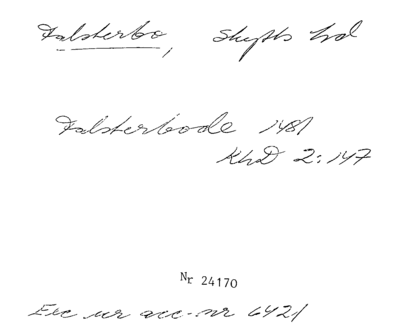 Falsterbo, Skytts hd
Falsterbode 1481
KhD 2:147
Nr 24170
Exc ur acc-nr 6421